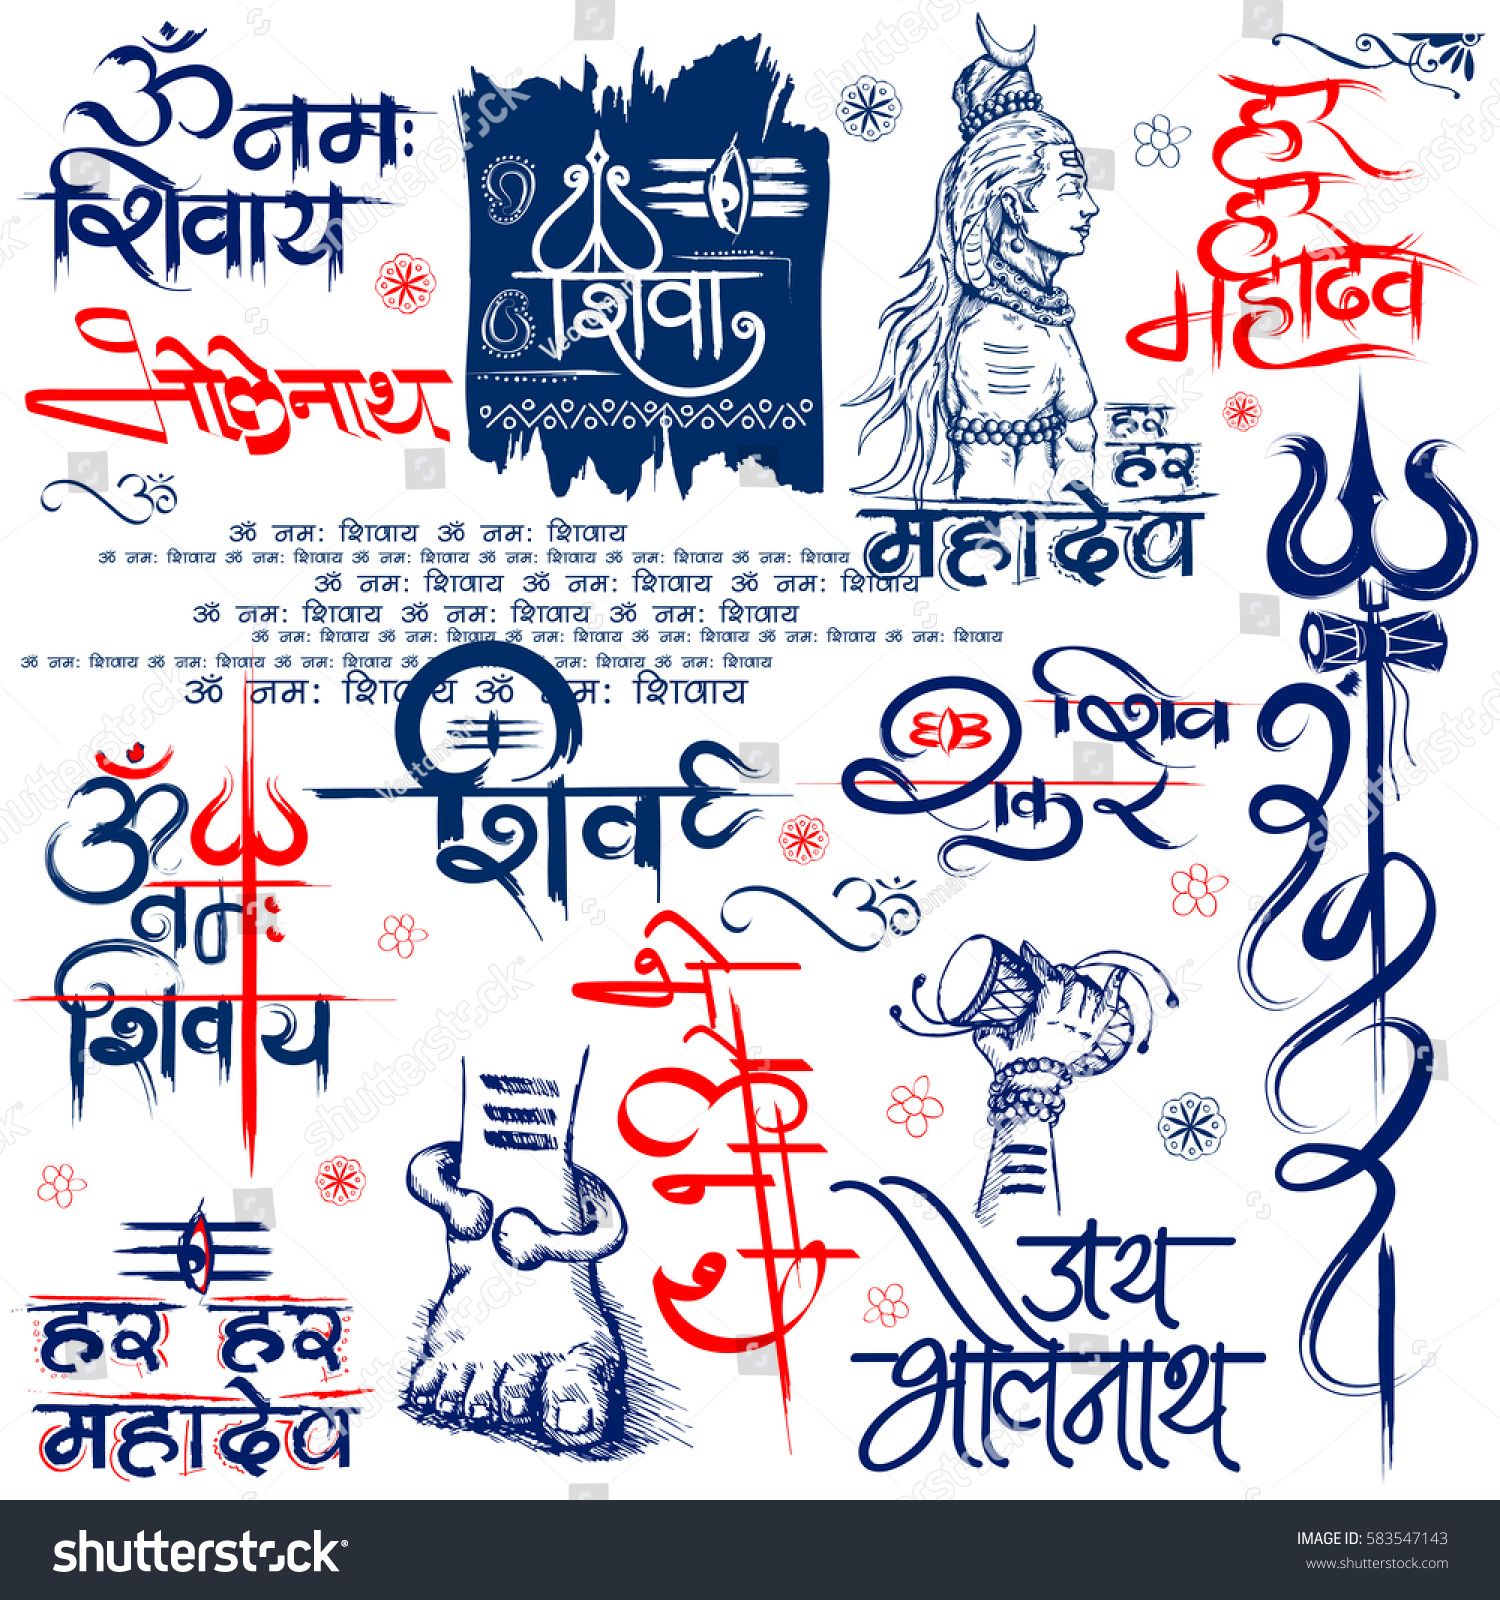 ॐ नमः
शिवाय
भोलेनाथ
शिवा
हर
हर
महादेव
हर
हर
महादेव
ॐ
ॐ नमः शिवाय ॐ नमः शिवाय
ॐ नमः शिवाय ॐ नमः शिवाय ॐ नमः शिवाय ॐ नमः शिवाय ॐ नमः शिवाय ॐ नमः शिवाय
ॐ नमः शिवाय ॐ नमः शिवाय ॐ नमः शिवाय
ॐ नमः शिवाय ॐ नमः शिवाय ॐ नमः शिवाय
ॐ नमः शिवाय ॐ नमः शिवाय ॐ नमः शिवाय ॐ नमः शिवाय ॐ नमः शिवाय ॐ नमः शिवाय
ॐ नमः शिवाय ॐ नमः शिवाय ॐ नमः शिवाय ॐ नमः शिवाय ॐ नमः शिवाय
ॐ नमः शिवाय ॐ नमः शिवाय
ॐ
नमः
शिवाय
शिव
शिव
शंकर
शंकर
ॐ
भोलेनाथ
हर हर
महादेव
जय
भोलेनाथ
shutterstock
IMAGE ID: 583547143
www.shutterstock.com